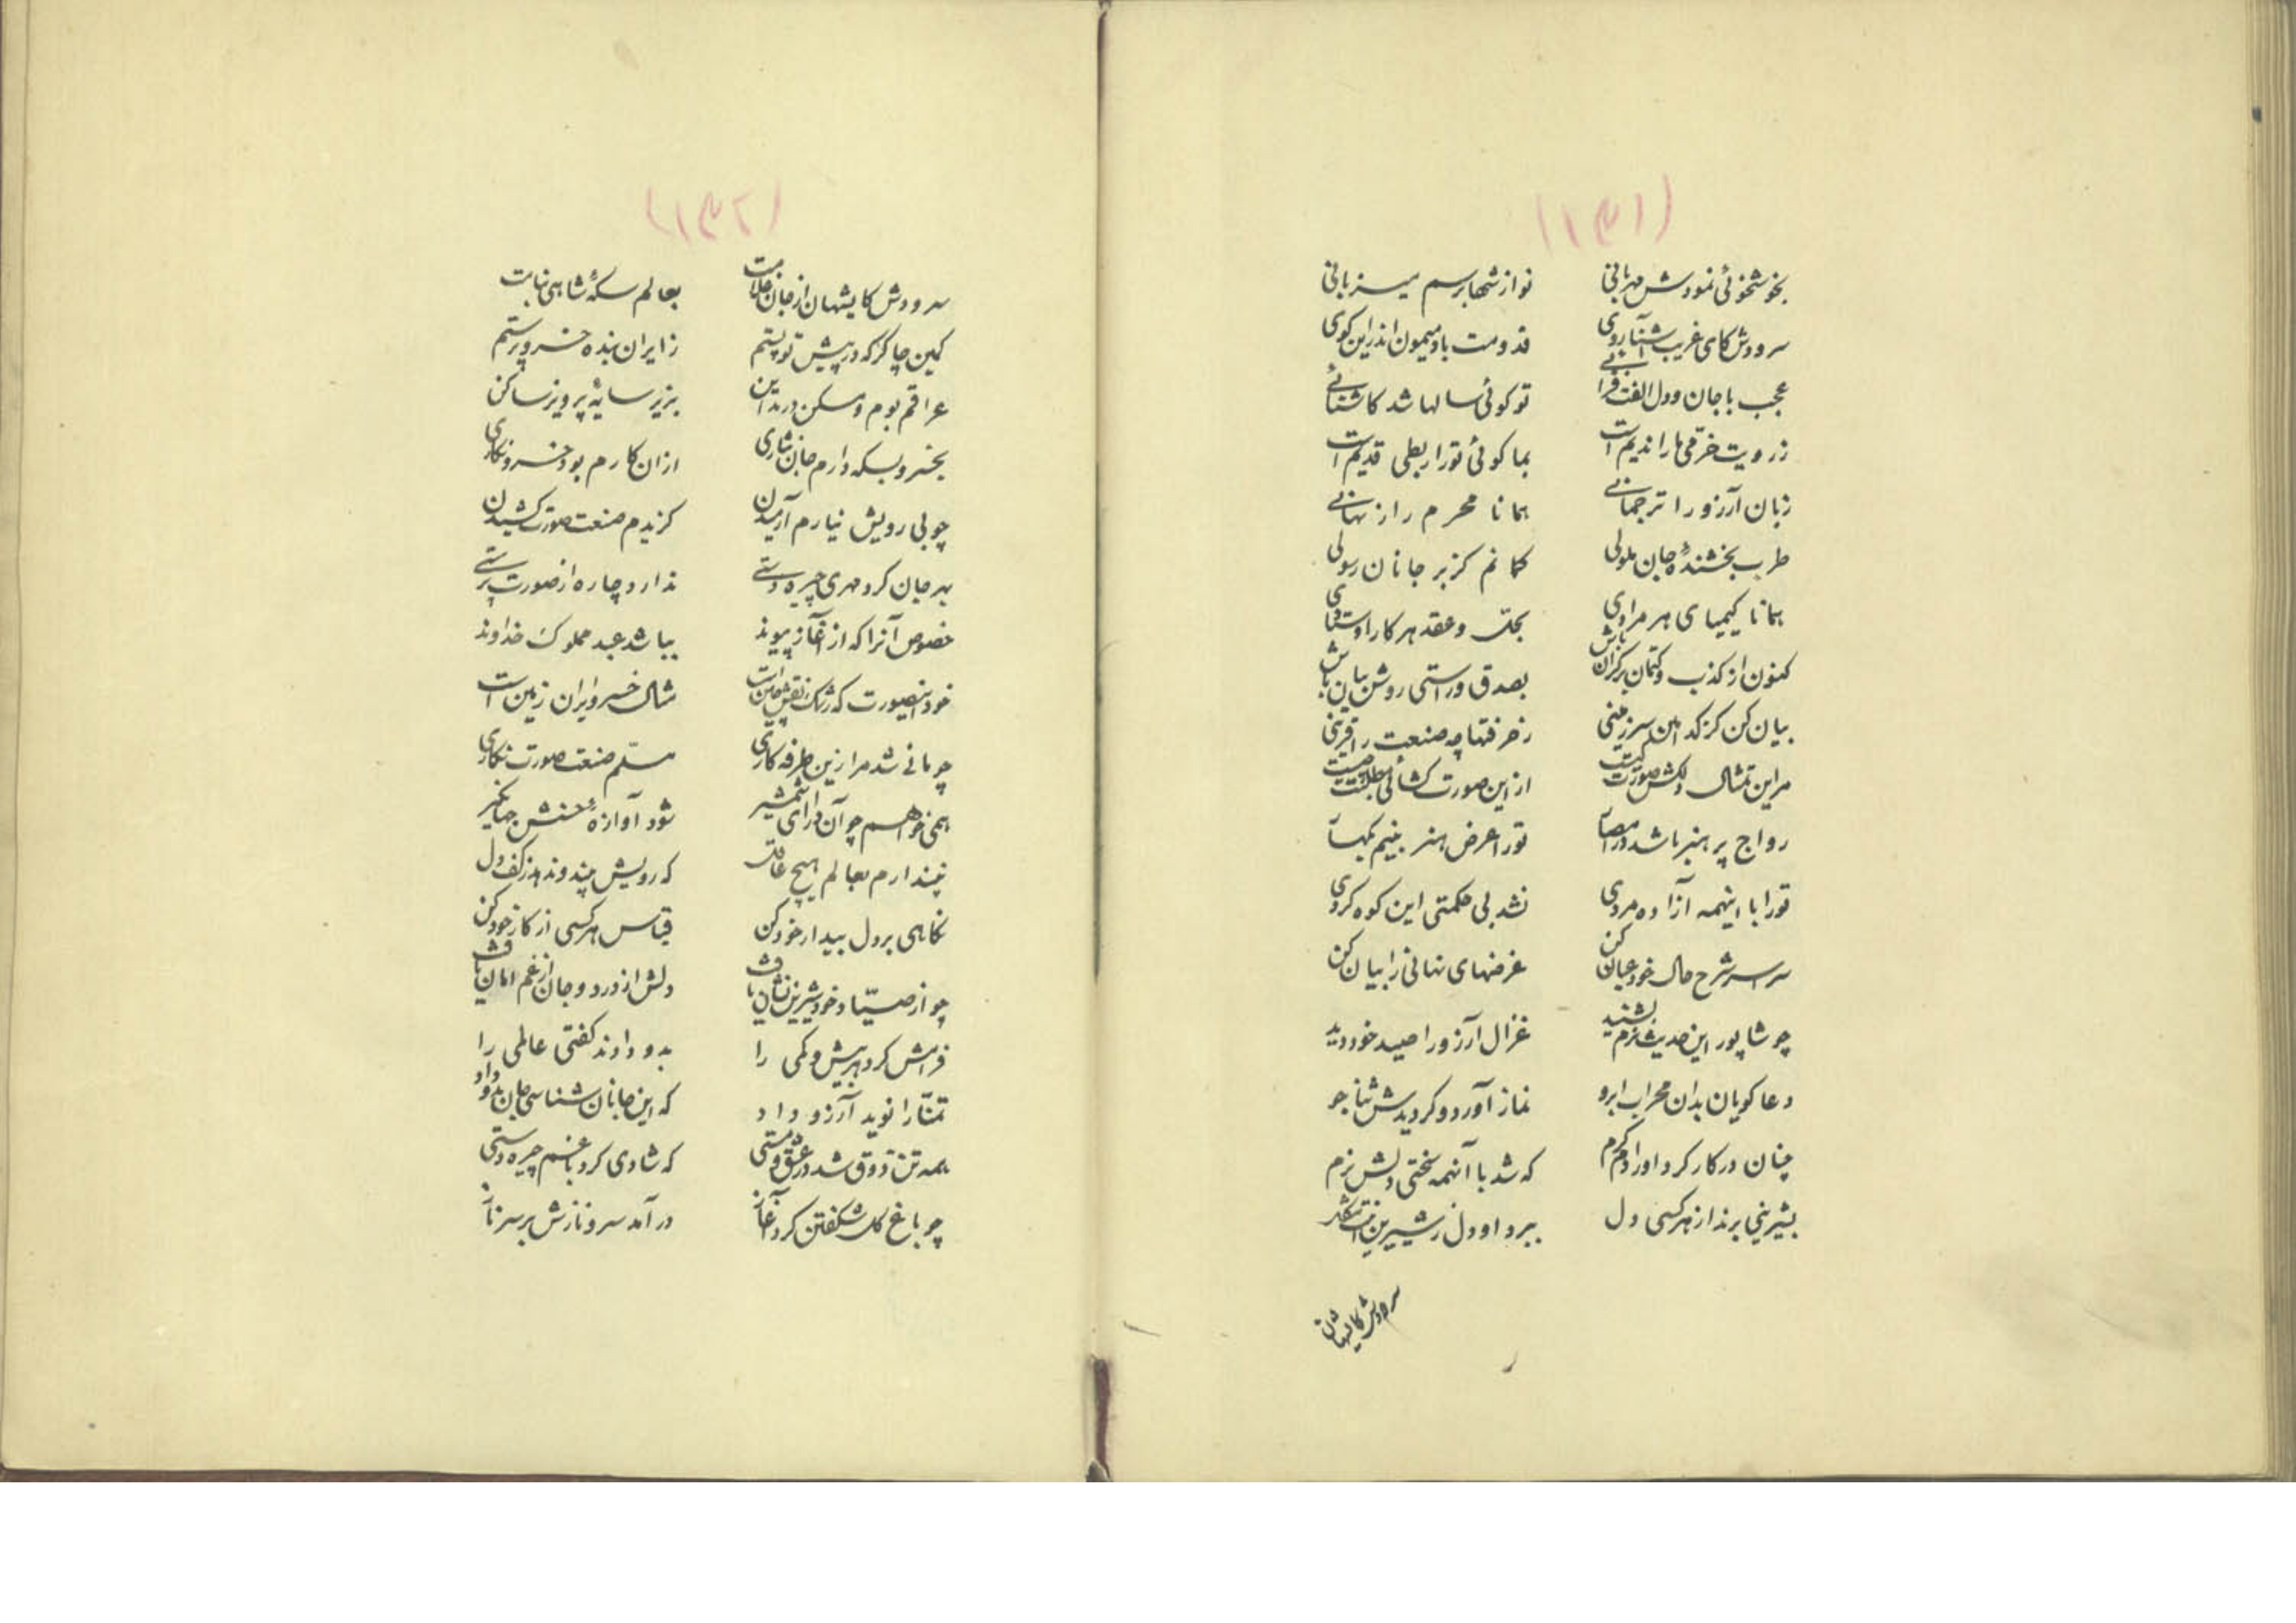 (۱۳۱)
بخوشخوئی نمودش مهربانی نوازشها برسم میزبانی
سرودش کای غریب آشنا روی قدومت باد میمون اندر این کوی
عجب با جان و دل الفت فزائی تو گوئی سالها شد کاشنائی
ز رویت خرمی ما را ندیم است بما گوئی تو را ربطی قدیم است
زبان آرزو را ترجمانی همانا محرم راز نهانی
طرب بخشندهٔ جان ملولی گمانم کز بر جانان رسولی
همانا کیمیای هر مرادی بحل و عقد هر کار اوستادی
کنون از کذب و کتمان بر کران باش بصدق و راستی روشن بیان باش
بیان کن کز کدامین سرزمینی ز حرفتها چه صنعت را قرینی
مر این تمثال دلکش صورت کیست از این صورت گشائی مطلبت چیست
رواج پر هنر باشد در امصار تو را عرض هنر بینم بکهسار
تو را با اینهمه آزاده مردی نشد بی حکمتی این کوه گردی
سراسر شرح حال خود عیان کن غرضهای نهانی را بیان کن
چو شاپور این حدیث نرم بشنید غزال آرزو را صید خود دید
دعا گویان بدان محراب ابرو نماز آورد و گردیدش ثنا جو
چنان در کار کرد او را دم گرم که شد با آنهمه سختی دلش نرم
بشیرینی برند از هر کسی دل ببرد او دل ز شیرین
سرودش کایشهان
(۱۳۲)
سرودش کایشهان از جان غلامت بعالم سکهٔ شاهی بنامت
کمین چاکر که در پیش تو پستم ز ایران بنده خسرو پرستم
عراقم بوم و مسکن در مداین بزیر سایهٔ پرویز ساکن
بخسرو بسکه دارم جان نثاری از آن کارم بود خسرو نگاری
چو بی رویش نیارم آرمیدن گزیدم صنعت صورت کشیدن
بهر جان کرد مهری چیره دستی ندارد چاره از صورت پرستی
خصوص آنرا که از آغاز پیوند بباشد عبد مملوک خداوند
خود اینصورت که رشک نقش چین است مثال خسرو ایران زمین است
چو مانی شد مرا زین طرفه کاری مسلّم صنعت صورت نگاری
همی خواهم چو آن دارای شمشیر شود آوازهٔ حسنش جهانگیر
نپندارم بعالم هیچ عاقل که رویش بیند و ندهد ز کف دل
نگاهی بر دل بیدار خود کن قیاس هر کسی از کار خود کن
چو از صیّاد خود شیرین نشان یافت دلش از درد و جان از غم امان یافت
فرامش کرد هر بیش و کمی را بدو دادند گفتی عالمی را
تمنّا را نوید آرزو داد که این جانان شناسی جان بدو داد
همه تن ذوق شد در عشق و مستی که شادی کرد با غم چیره دستی
چو باغ گل شکفتن کرد آغاز در آمد سرو نازش بر سر ناز